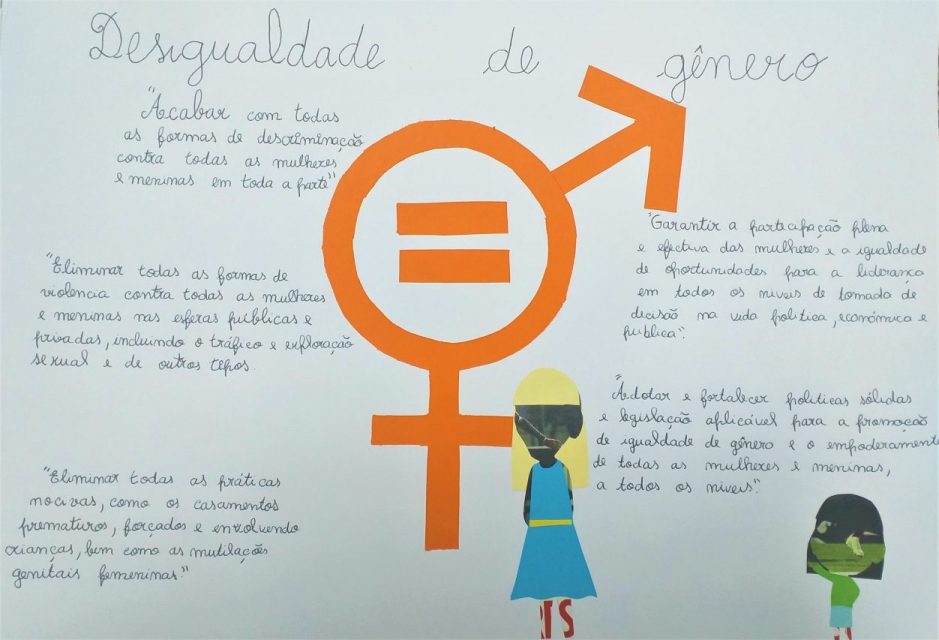 Desigualdade de gênero
"Acabar com todas
as formas de descriminação
contra todas as mulheres
e meninas em toda a parte"
"Eliminar todas as formas de
violencia contra todas as mulheres
e meninas nas esferas públicas e
privadas, incluindo o tráfico e exploração
sexual e de outros tipos.
"Eliminar todas as práticas
nocivas, como os casamentos
prematuros, forçados e envolvendo
crianças, bem como as mutilações
genitais femeninas."
"Garantir a participação plena
e efectiva das mulheres e a igualdade
de oportunidades para a liderança
em todos os niveis de tomada de
decisão na vida politica, económica e
publica".
"Adotar e fortalecer politicas sólidas
e legislação aplicável para a promoção
de igualdade de gênero e o empoderamento
de todas as mulheres e meninas,
a todos os niveis".
RTS